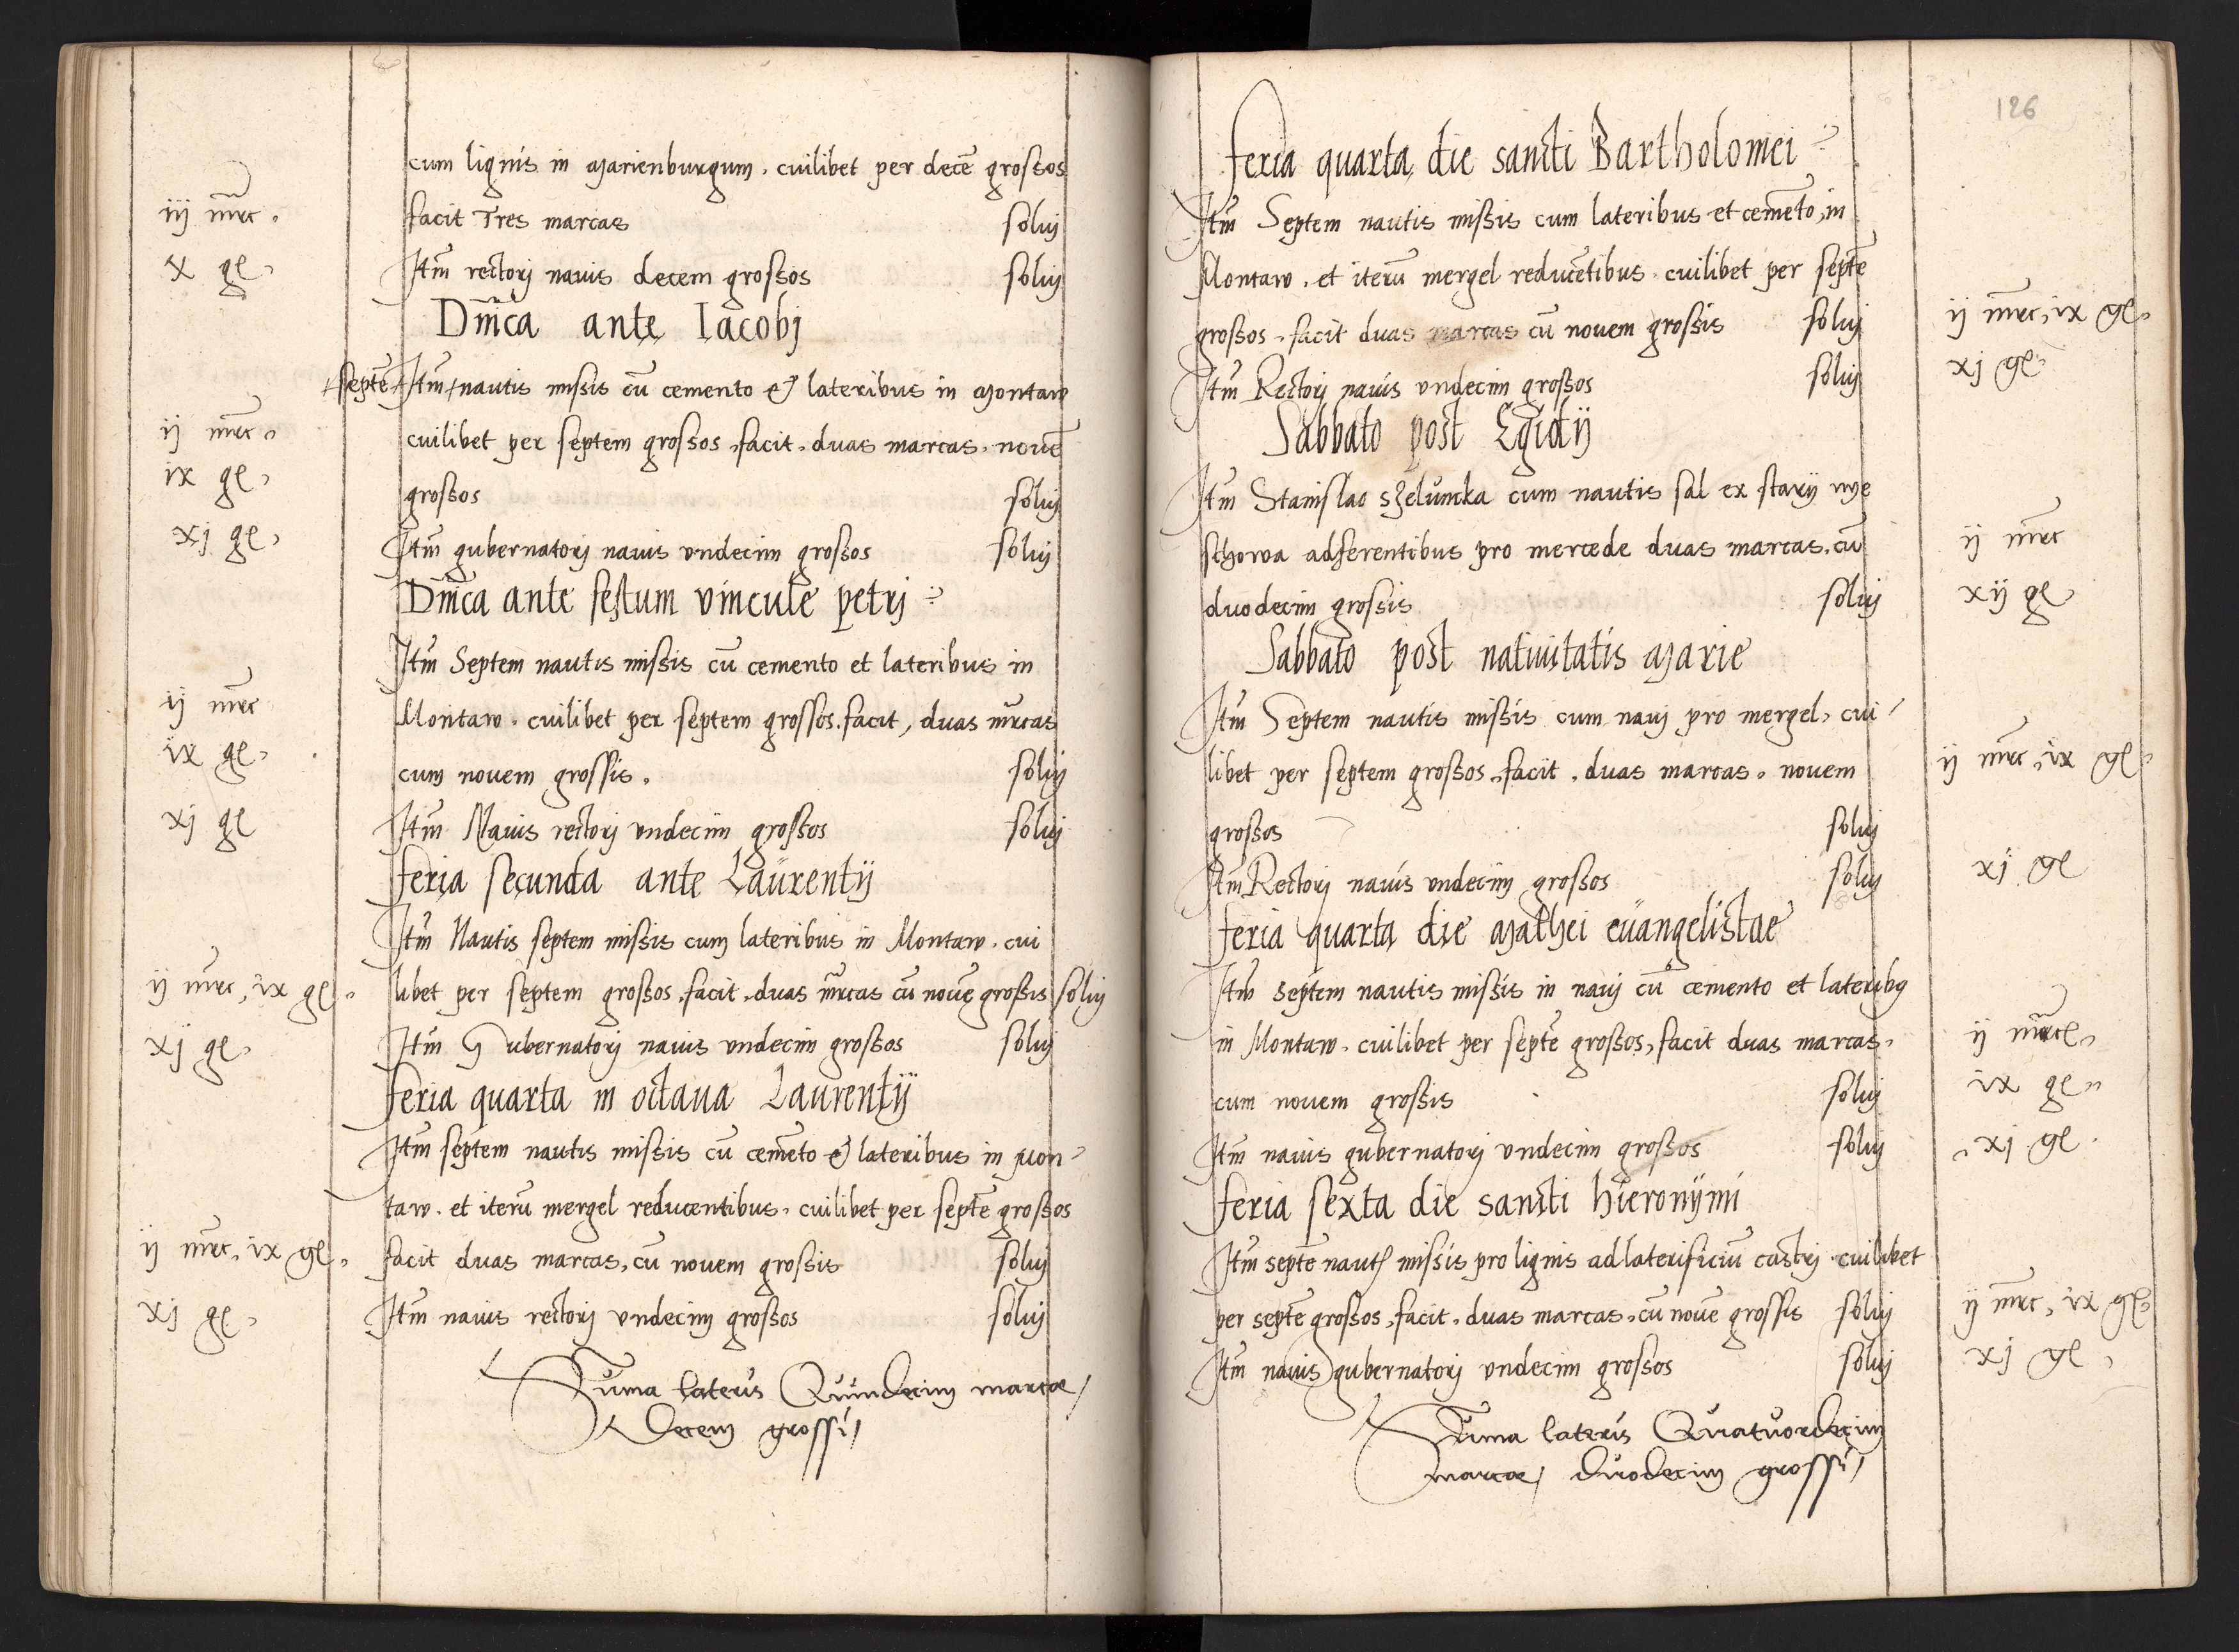 cum lignis in Marienburgum. cuilibet per decē grossos
iij mrc. facit Tres marcas soluj
x gl. Itm̄ rectorj nauis decem grossos soluj
Dnīca ante Iacobj
septē Itm̄ nautis missis cū cemento et lateribus in Montaw
ij mrc. cuilibet per septem grossos. facit. duas marcas. nouē
ix gl. grossos soluj
xj gl. Itm̄ gubernatorj nauis vndecim grossos soluj
Dnīca ante festum vincule petrj
Itm̄ Septem nautis missis cū cemento et lateribus in
ij mrc Montaw. cuilibet per septem grossos. facit, duas mrcas
ix gl. cum nouem grossis. soluj
xj gl Itm̄ Nauis rectorj vndecim grossos soluj
feria secunda ante Laurentij
Itm̄ Nautis septem missis cum lateribus in Montaw. cui
ij mrc, ix gl. libet per septem grossos. facit. duas mrcas cū nouē grossis soluj
xj gl. Itm̄ Gubernatorj nauis vndecim grossos soluj
feria quarta in octaua Laurentij
Itm̄ septem nautis missis cū cemēto et lateribus in Mon-
taw. et iterū mergel reducentibus. cuilibet per septē grossos
ij mrc, ix gl. facit duas marcas, cū nouem grossis soluj
xj gl. Itm̄ nauis rectorj vndecim grossos soluj
Suma lateris Quindecim marcae
Decem grossi
126
feria quarta die sancti Bartholomei
Itm̄ Septem nautis missis cum lateribus et cemēto, in
Montaw. et iterū mergel reducētibus. cuilibet per septē
grossos. facit duas marcas cū nouem grossis soluj ij mrc, ix gl.
Itm̄ Rectorj nauis vndecim grossos soluj xj gl.
Sabbato post Egidij
Itm̄ Stanislao szelumka cum nautis sal ex starij wye
schowa adferentibus pro mercede duas marcas. cū ij mrc
duodecim grossis soluj xij gl
Sabbato post natiuitatis Marie
Itm̄ Septem nautis missis cum nauj pro mergel. cui-
libet per septem grossos. facit. duas marcas. nouem ij mrc, ix gl.
grossos soluj
Itm̄ Rectorj nauis vndecim grossos soluj xj gl
feria quarta die Mathei euangelistae
Itm̄ septem nautis missis in nauj cū cemento et lateribq
in Montaw. cuilibet per septē grossos, facit duas marcas. ij mrc.
cum nouem grossis soluj ix gl.
Itm̄ nauis gubernatorj vndecim grossos soluj xj gl.
feria sexta die sancti hieronijmi
Itm̄ septē naut missis pro lignis ad laterificiū castrj cuilibet
per septē grossos. facit. duas marcas. cū nouē grossis soluj ij mrc, ix gl.
Itm̄ nauis gubernatorj vndecim grossos soluj xj gl.
Suma lateris Quatuordecim
marcae duodecim grossi